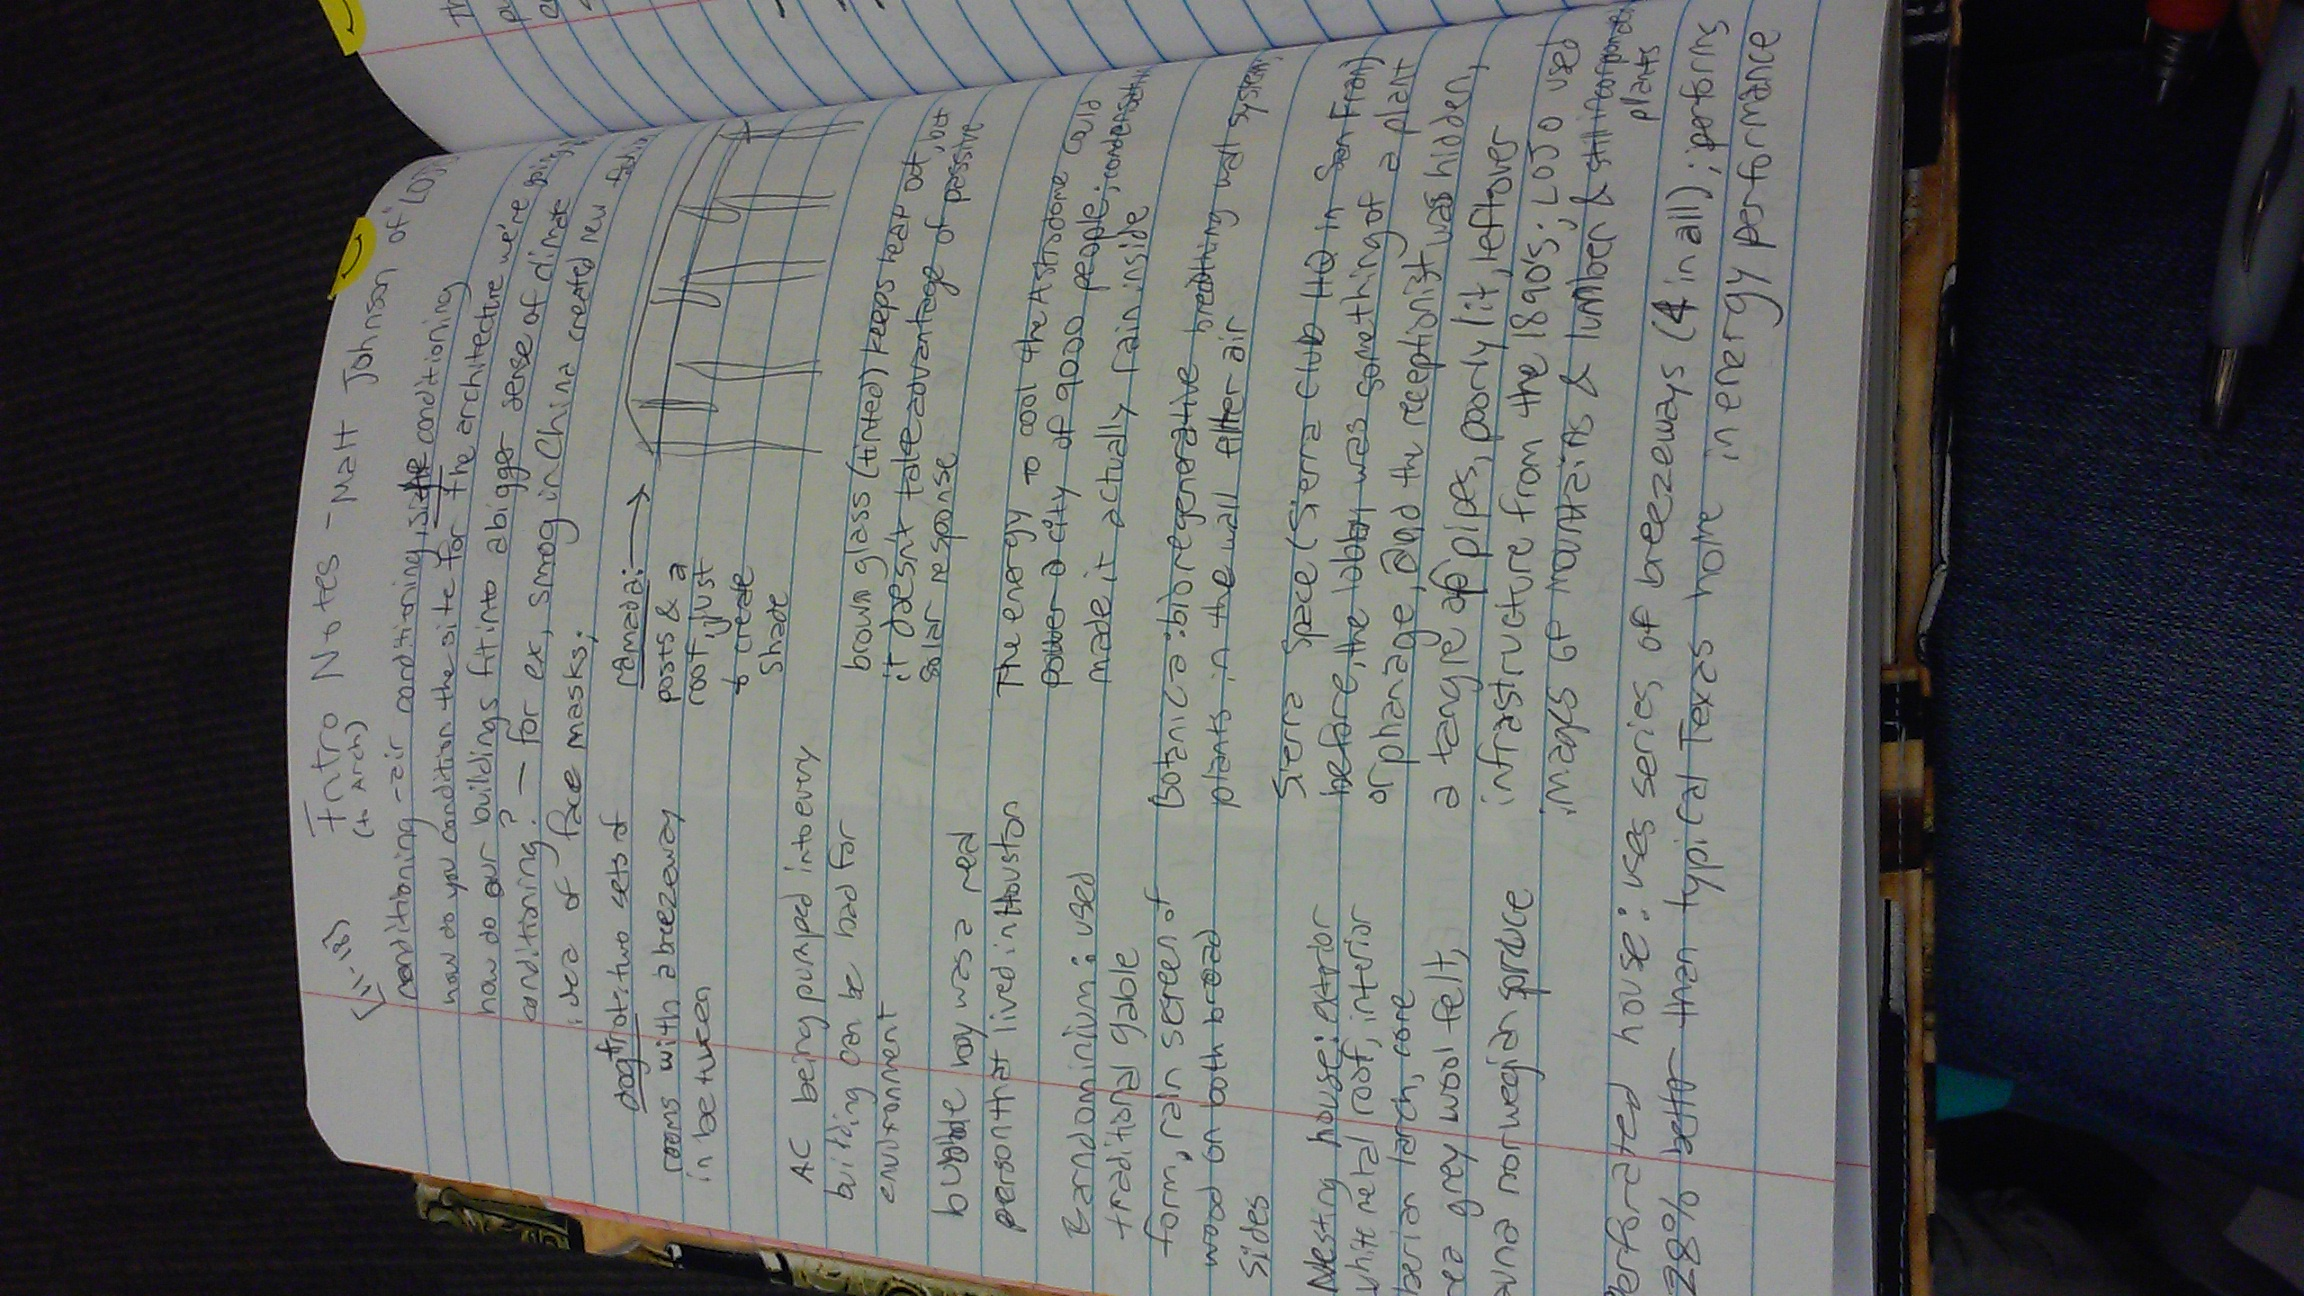 (11-18)
Intro Notes - Matt Johnson of LOJO
(to Arch)
conditioning - air conditioning, site conditioning
how do you condition the site for the architecture
how do our buildings fit into a bigger sense of climate
conditioning? - for ex, smog in China created new
idea of face masks;
dogtrot: two sets of
rooms with a breezeway
in between
ramada: →
posts & a
roof, just
to create
shade
AC being pumped into every
building can be bad for
environment
brown glass (tinted) keeps heat out, but
it doesn't take advantage of passive
solar response
bubble boy was a real
person that lived in Houston
The energy to cool the Astrodome could
power a city of 9000 people; condensation
made it actually rain inside
Barndominium: used
traditional gable
form, rain screen of
wood on both broad
sides
Botanica: bioregenerative breathing wall system,
plants in the wall filter air
Nesting house: exterior
white metal roof, interior
berian larch, core
rea grey wool felt,
auna norwegian spruce
Sierra Space (Sierra Club HQ in San Fran)
before, the lobby was something of a plant
orphanage, and the receptionist was hidden,
a tangle of pipes, poorly lit, leftover
infrastructure from the 1890's; LOJO used
images of mountains & lumber & still incorporated
plants
Perforated house: uses series of breezeways (4 in all); performs
28% better than typical Texas home in energy performance